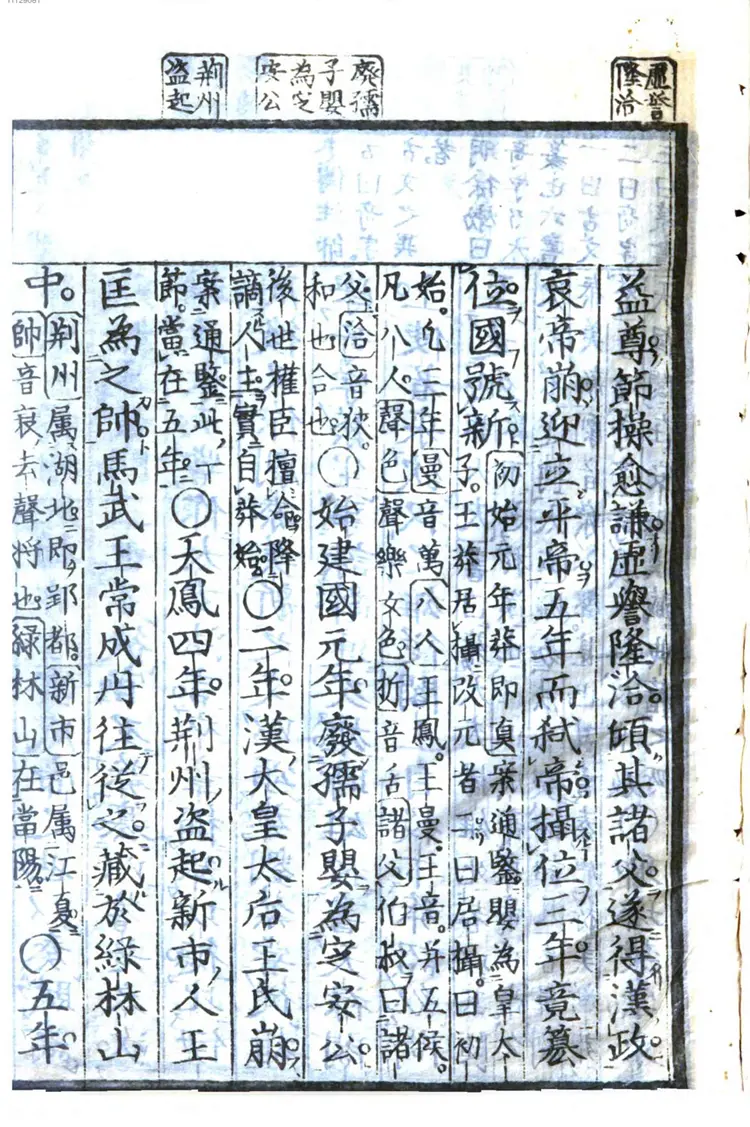 虚譽隆洽
廢孺子嬰為定安公
荊州盗起
益尊節操愈謙虚譽隆洽傾其諸父遂得漢政
哀帝崩迎立平帝五年而弑帝攝位三年竟簒
位。國號新 初始元年莽即真案通鑒嬰為皇太
子。王莽居攝改元者二曰居攝。曰初
始。凢三年曼音萬八人王鳳。王曼。王音。并五侯。
凡八人。聲色聲樂女色折音舌諸父伯叔曰諸
父。洽音狄。
和也合也〇始建國元年廢孺子嬰為定安公
後世權臣擅命降
謫人主實自莽始〇二年漢太皇太后王氏崩
案通鑒此一
節當在五年〇天鳳四年荊州盗起新市人王
匡為之帥馬武王常成丹往從之藏於緑林山
中。荊州属湖北即郢都。新市邑属江夏
帥音衰去聲將也緑林山在當陽〇五年